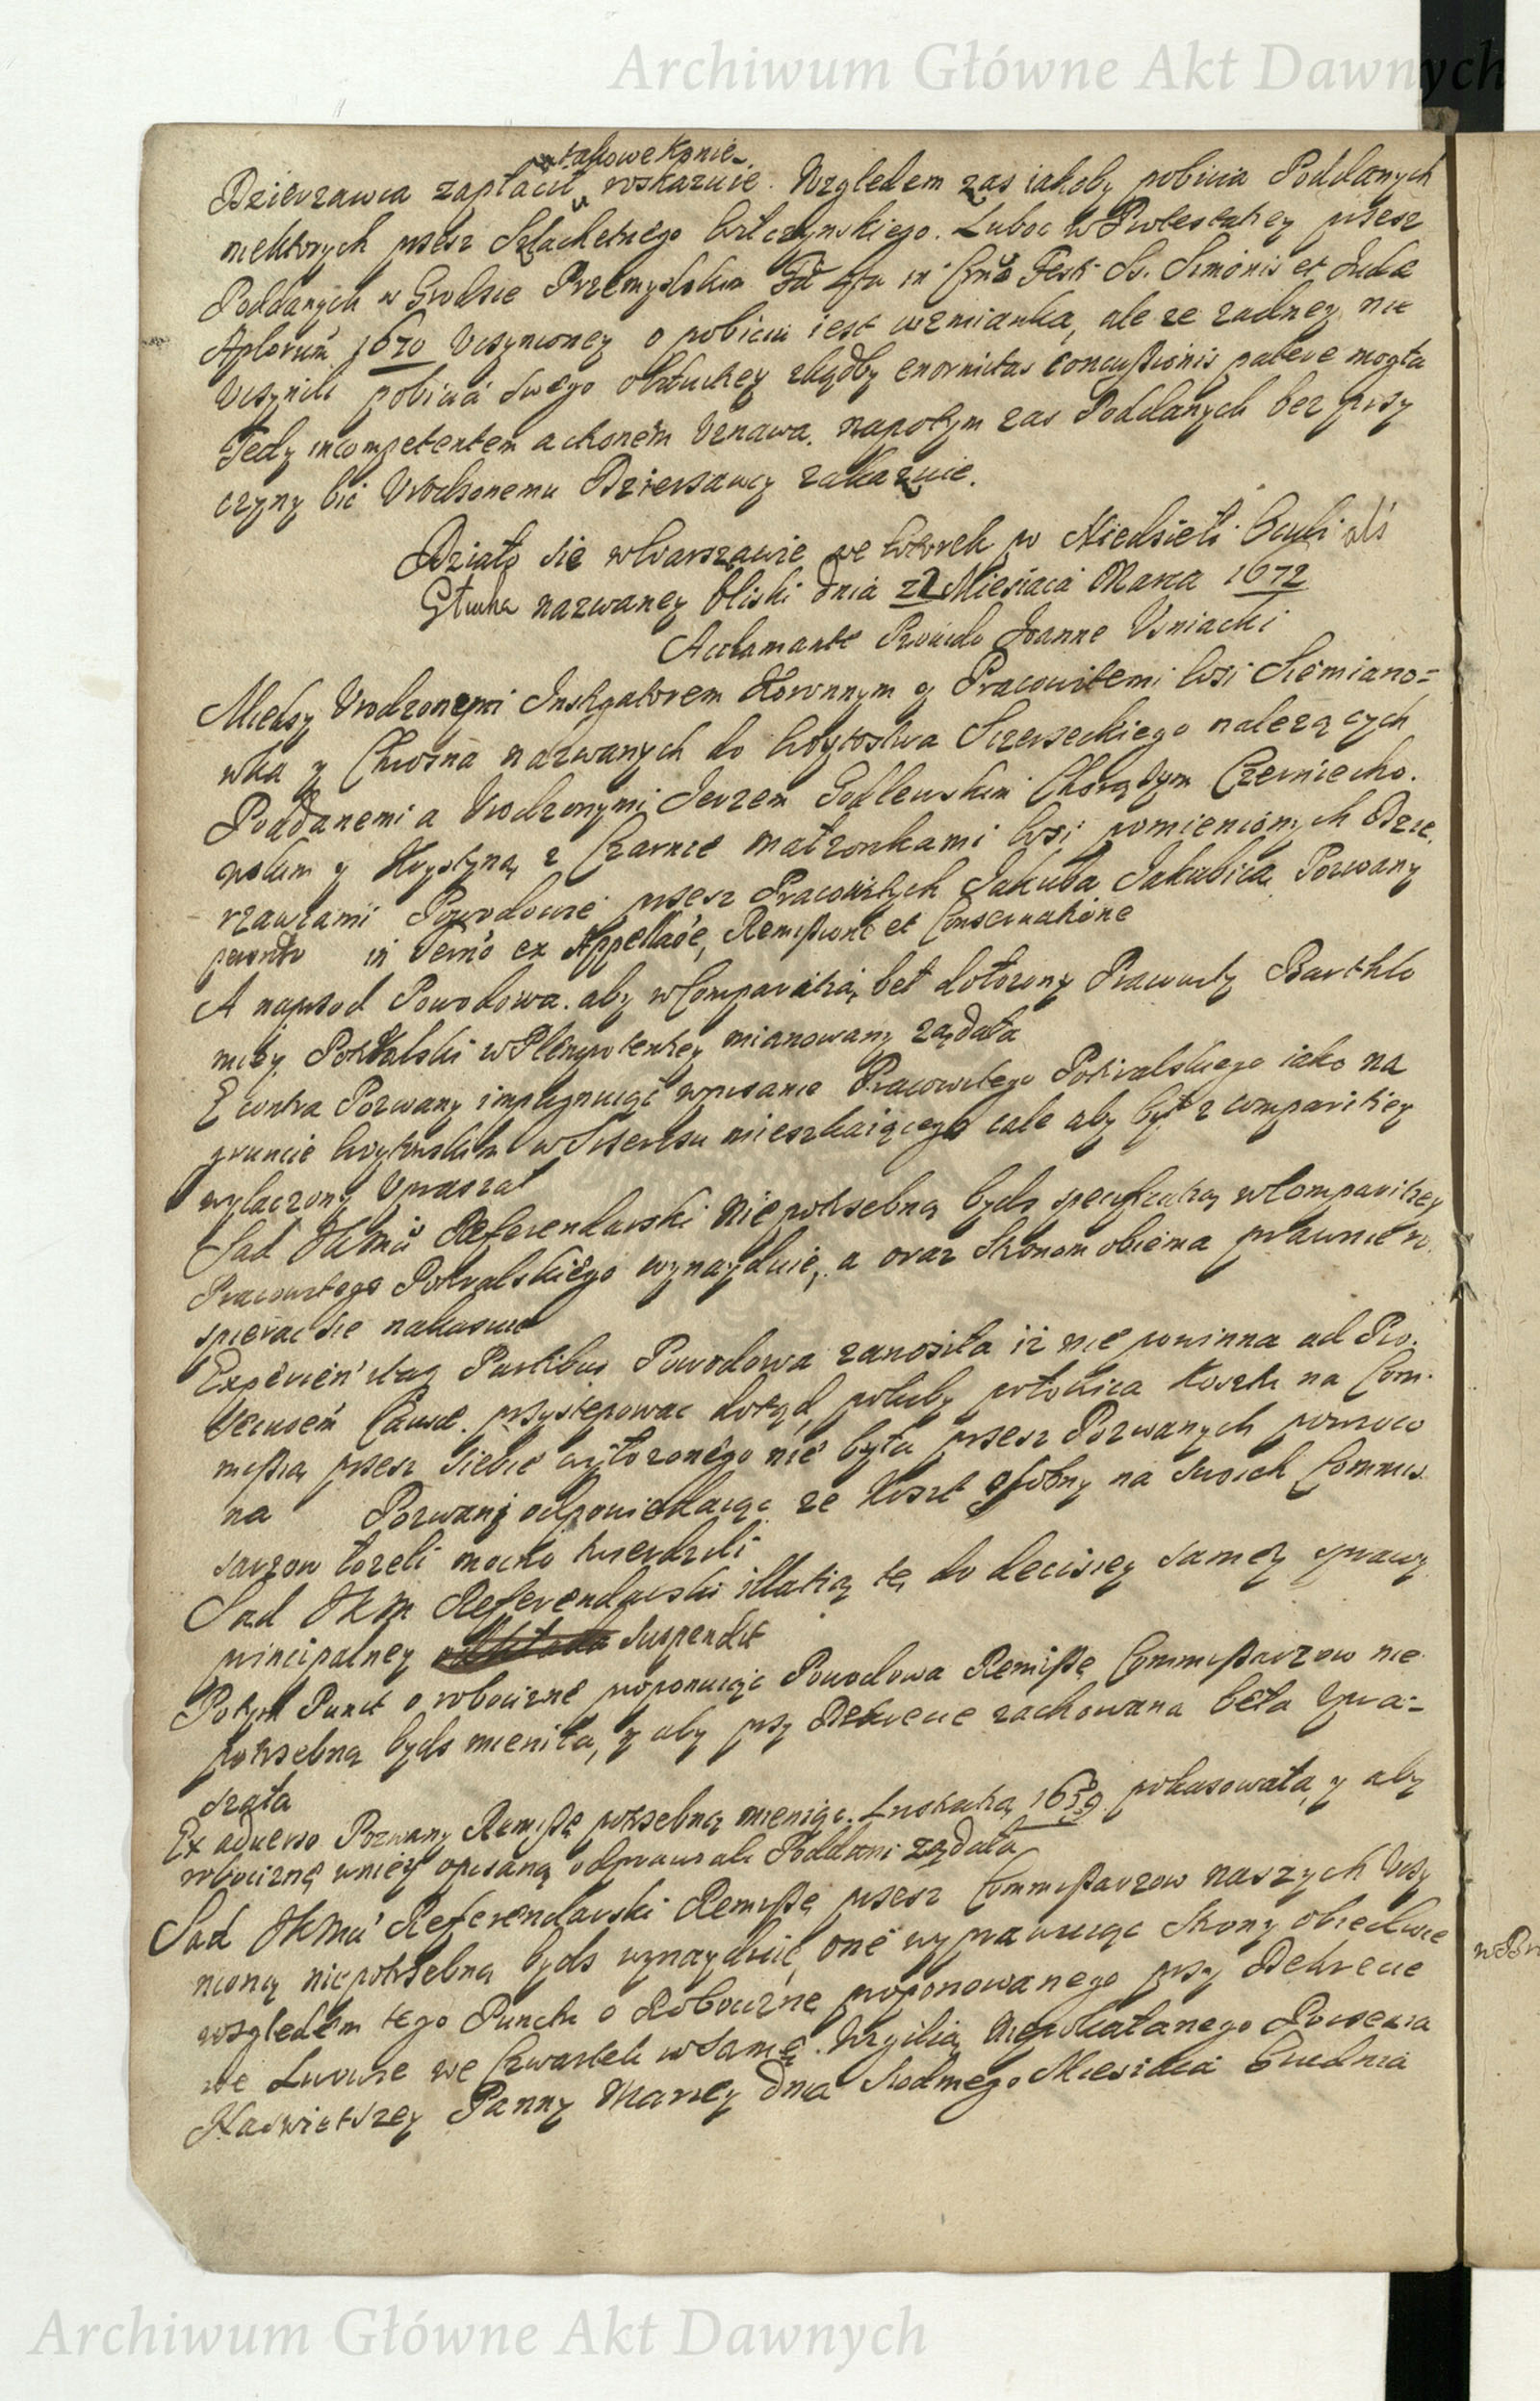 Archiwum Główne Akt Dawnych
takowe konie
Dzierzawca zapłacił roskazuie. Względem zas iakoby pobicia Poddanych
niektorych przez Szlachetnego Wilczynskiego. Luboc w Protestatiey przez
Poddanych w Grodzie Przemyskim Fa 4ta in Crno Festi Ss. Simonis et Judæ
Aplorum 1670 Uczynioney o pobiciu iest wzmianka, ale ze zadney nie
Uczynili pobicia swego obdukcyey zkądby enormitas concussionis patere mogła
Tedy incompetentem actionem Uznawa. napotym zas Poddanych bez przy
czyny bić Urodzonemu Dzierzawcy zakazuie.
Działo sie w Warszawie we Wtorek po Niedzieli Oculi als
Głucha nazwaney bliski dnia 22 Miesiaca Marca 1672
Acclamante Provido Joanne Usniacki
Miedzy Urodzonymi Instigatorem Koronnym y Pracowitemi Wsi Siemiano=
wka y Chrosna nazwanych do Woytostwa Sczerzeckiego nalezących
Poddanemi a Urodzonymi Jerzem Godlewskim Chorążym Czerniecho.
wskim y Krystyną z Czarnce małzonkami Wsi pomienionych Dzie.
rzawcami Powodowie przez Pracowitych Jakuba Jakubica Pozwany
in Termo ex Appellaoe, Remissione et Conservatione
A naprzod Powodowa. aby w Comparitią bel dołozony Pracowity Barthło
miey Potralski w Plenipotentiey mianowany ządała
E contra Pozwany impugnuiąc wpisanie Pracowitego Potralskiego iako na
gruncie Woytowskim w Sczercu mieszkaiącego cale aby był z comparitiey
wyłaczony Upraszał
Sad JKMci Referendarski niepotrzebną bydz specificatią w Comparitiey
Pracowitego Potralskiego wynayduie, a oraz Stronom obiema prawnie ro.
spierac sie nakazuie
Experien' itaq Partibus Powodowa zanosiła iz nie powinna ad Pro.
secusem Causæ. przystępowac dotąd, pokiby połowica kosztu na Com.
missią przez siebie wyłozonego nie była przez Pozwanych powroco
na Pozwany odpowiedaiąc ze koszt osobny na swoich Commis.
sarzow łozeli mocno twierdzili
Sad JKM Referendarski illatią tę do decisiey samey sprawy
principalney suspendit
Potym Punct o robocizne proponuiąc Powodowa Remissę Commissarzow nie
potrzebną bydz mieniła, y aby przy Dekrecie zachowana beła Upra=
szała
Ex adverso Pozwany Remissę potrzebną mieniąc. Lustratią 1659 pokazowała, y aby
robociznę wniey opisaną odprawiali Poddani ządała
Sad JKMci Referendarski Remissę przez Commissarzow naszych Uczy
nioną niepotrzebną bydz wynayduie, one wyprawuiąc Strony obiedwie
względem tego Punctu o Robociznę proponowanego przy Dekrecie
we Lwowie we Czwartek w Samę. Wigilią Niepokalanego Poczecia
Naswiętszey Panny Maryey dnia Siodmego Miesiaca Grudnia
Archiwum Główne Akt Dawnych